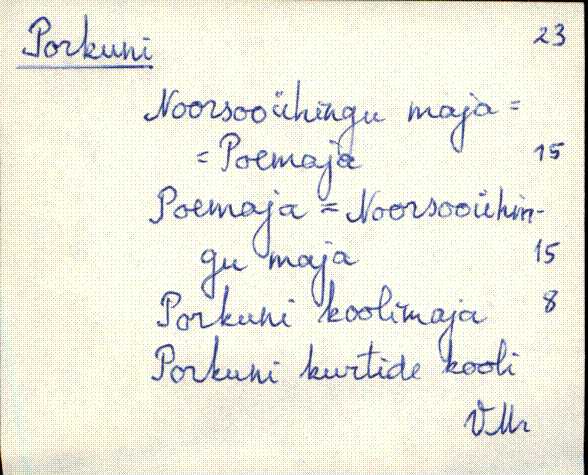 Porkuni 23
Noorsooühingu maja =
= Poemaja 15
Poemaja = Noorsooühin-
gu maja 15
Porkuni koolimaja 8
Porkuni kurtide kooli
VMr